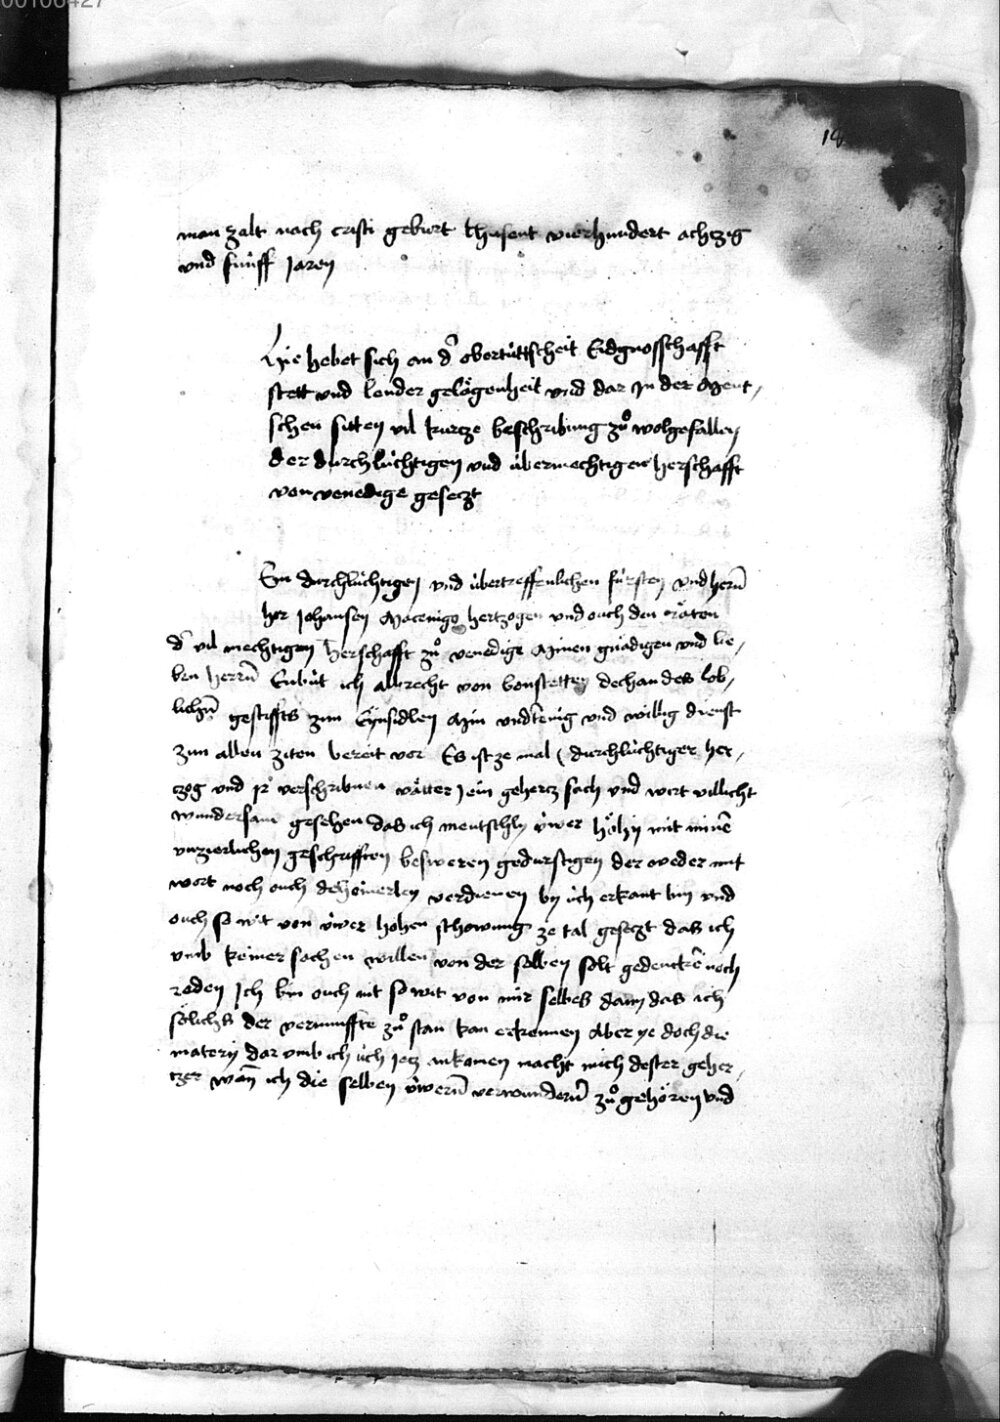 00106427
14
man zalt nach cristi geburt thusent vierhundert achzig
und fünff jaren
Hie hebet sich an d̄ obertüttscheit Eidgnosschafft
stett und lender gelägenheit und dar zu der Ment,
schen sitten vil kurcze beschribung zů wolgefallen
der durchlüchtigen und übermechtigen herschafft
von venedige gesetzt
Em durchlüchtigen und übertreffenlichen fürsten und hern̄
her Johansen Mocenigo hertzogen und ouch den räten
d̄ vil mechtigen herschafft zů venedige Minen gnädigen und lie,
ben herrn̄ Enbüt ich albrecht von bonstetten dechan des lob,
lichen̄ gestiffts zun Eynsidlen Min undtenig und willig dienst
zun allen ziten bereit vor Es ist ze mal ( durchlüchtiger her,
czog und jr verschribnen vätter ) ein gehercz sach und wirt villicht
wundersam gesehen das ich mentschly üwer höhy mit minē
unzierlichen geschrifften besweren gedurstigen der weder mit
wort noch ouch deheinerley verdienen by üch erkant bin und
ouch so wit von üwer hohen schowung ze tal gesetzt das ich
umb keiner sachen willen von der selben solt gedenckē noch
reden Ich bin ouch nit so wit von mir selbes dann das ich
sölichs der vernunffte zů stan kan erkennen Aber ye doch die
matery dar umb ich üch jecz ankomen macht mich dester geher,
tzer wan̄ ich die selben üwern̄ verwundern̄ zů gehören und